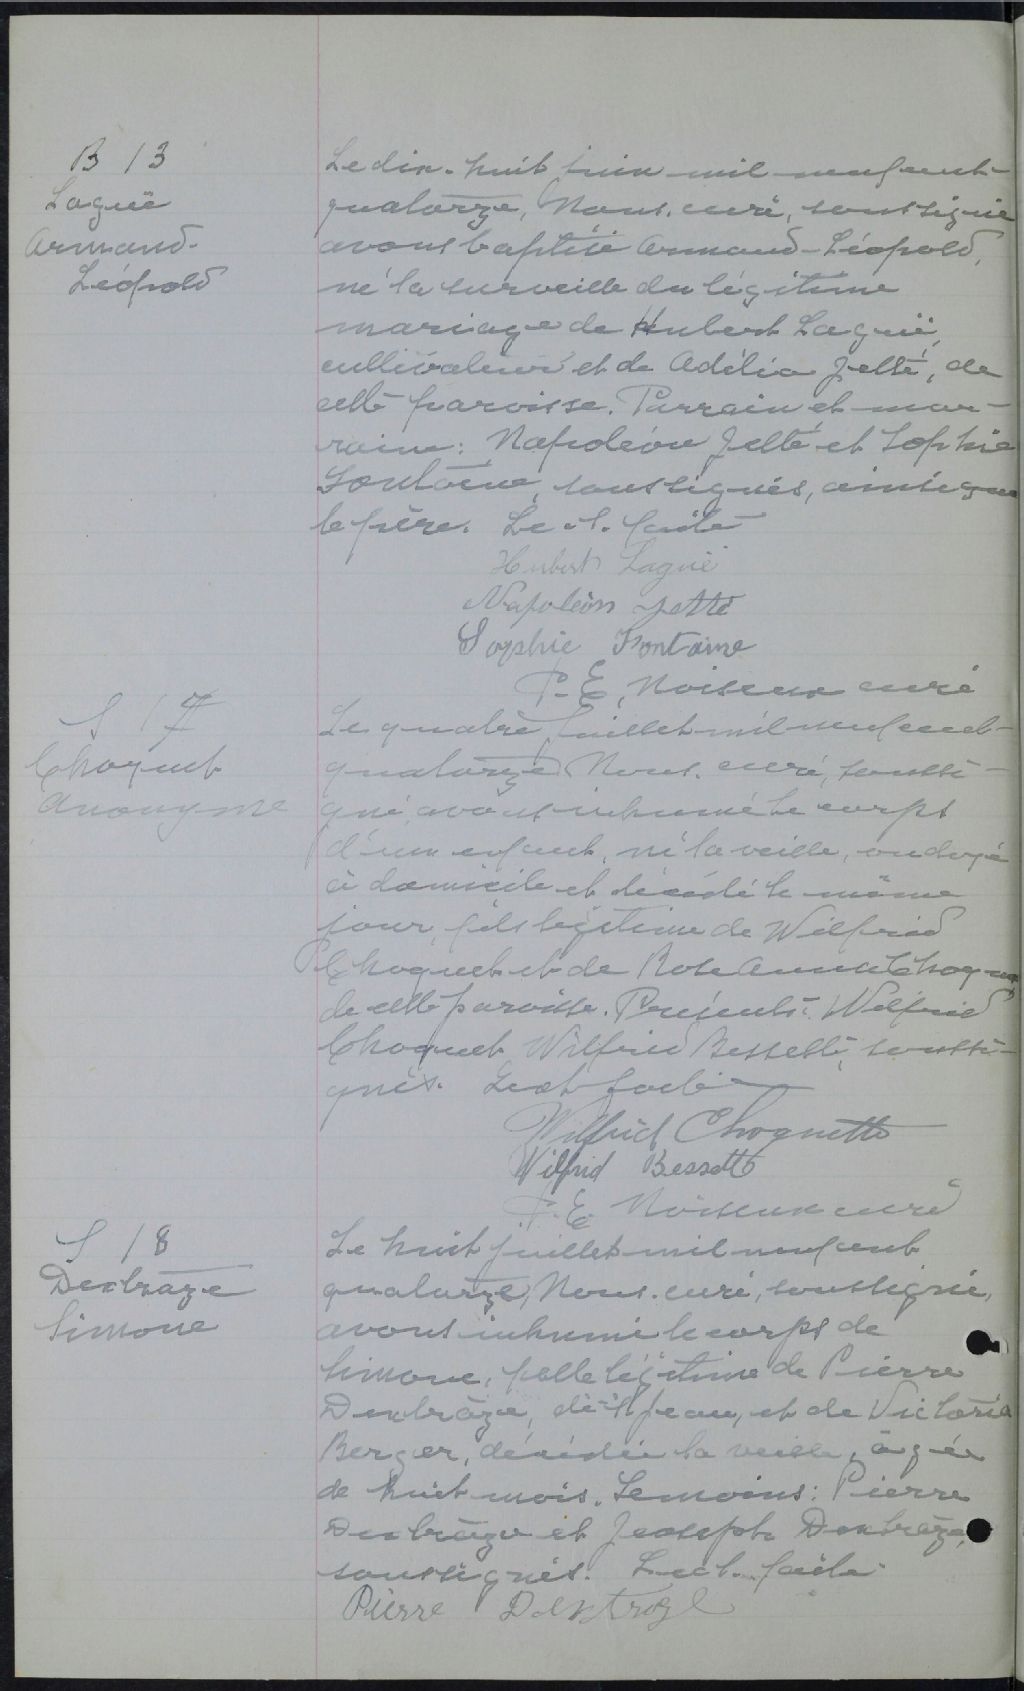 B 13
Laguë
Armand-
Léopold
Le dix-huit juin mil neuf cent-
quatorze, Nous, curé, soussigné
avons baptisé Armand-Léopold,
né la surveille du légitime
mariage de Hubert Laguë,
cultivateur et de Adélia Jetté, de
cette paroisse. Parrain et mar-
raine: Napoléon Jetté et Sophie
Fontaine, soussignés, ainsi que
le père. Lect. faite
Hubert Laguë
Napoléon Jetté
Sophie Fontaine
P.-E. Noiseux curé
S 17
Choquet
Anonyme
Le quatre juillet mil neuf cent-
quatorze Nous, curé, soussi-
gné, avons inhumé le corps
d'un enfant, né la veille, ondoyé
à domicile et décédé le même
jour, fils légitime de Wilfrid
Choquet et de Rose Anna
de cette paroisse. Présents: Wilfrid
Choquet Wilfrid Bessette, soussi-
gnés. Lect faite
Wilfrid Choquette
Wilfrid Bessette
P.-E. Noiseux curé
S 18
Dextraze
Simone
Le huit juillet mil neuf cent
quatorze, Nous, curé, soussigné,
avons inhumé le corps de
Simone, fille légitime de Pierre
Dextraze, et de Victoria
Berger, décédée la veille, âgée
de huit mois. Témoins: Pierre
Dextraze et Joseph Dextraze,
soussignés. Lect. faite
Pierre Dextraze